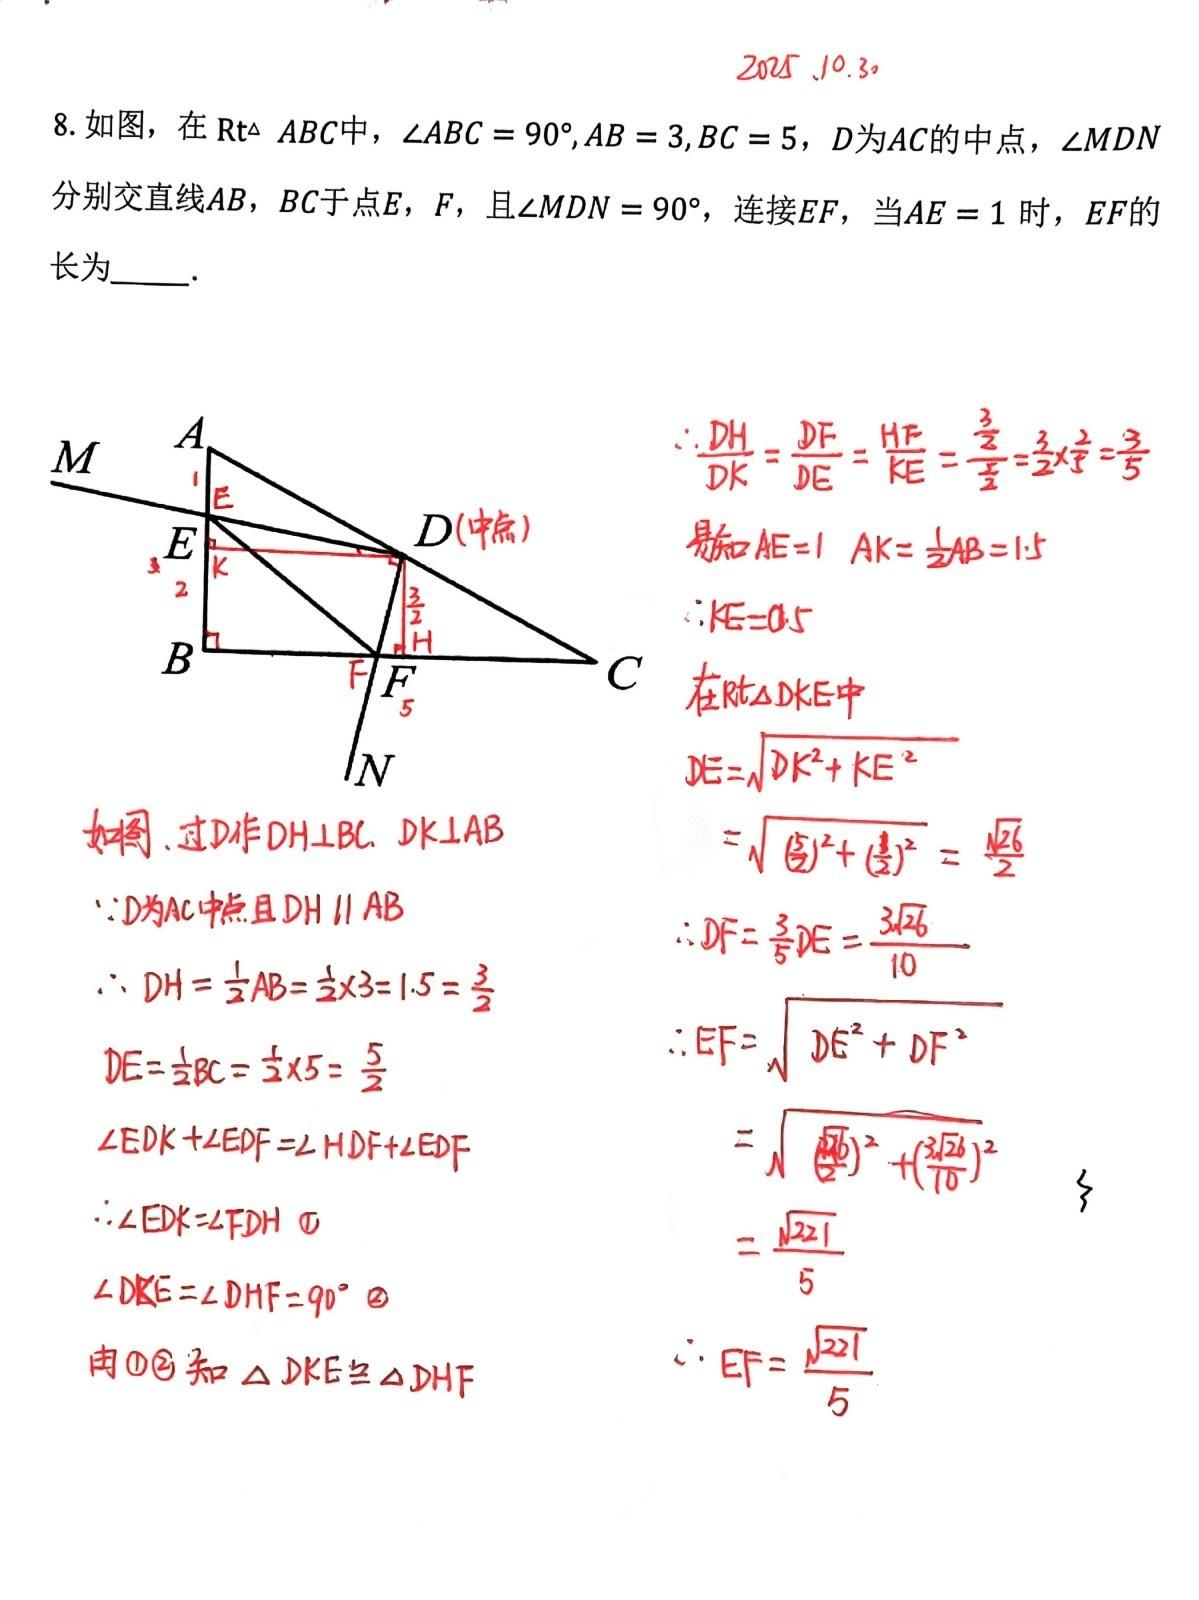 2025.10.30
8. 如图，在 Rt△ ABC中，∠ABC = 90°, AB = 3, BC = 5，D为AC的中点，∠MDN
分别交直线AB，BC于点E，F，且∠MDN = 90°，连接EF，当AE = 1 时，EF的
长为_____.
A
M
1
E
D(中点)
E
K
3
2
3/2
B
H
F
F
C
5
N
如图、过D作DH⊥BC、DK⊥AB
∵D为AC中点且DH∥AB
∴ DH = 1/2 AB = 1/2×3 = 1.5 = 3/2
DE = 1/2 BC = 1/2×5 = 5/2
∠EDK+∠EDF=∠HDF+∠EDF
∴∠EDK=∠FDH ①
∠DKE=∠DHF=90° ②
由①②知 △DKE≌△DHF
∴ DH/DK = DF/DE = HF/KE = (3/2)/(5/2) = 3/2×2/5 = 3/5
易知AE=1 AK=1/2AB=1.5
∴KE=0.5
在Rt△DKE中
DE=√(DK²+KE²)
=√((5/2)²+(1/2)²) = √26/2
∴DF=3/5DE=3√26/10
∴EF=√(DE²+DF²)
=√((√26/2)²+(3√26/10)²)
=√221/5
∴ EF=√221/5